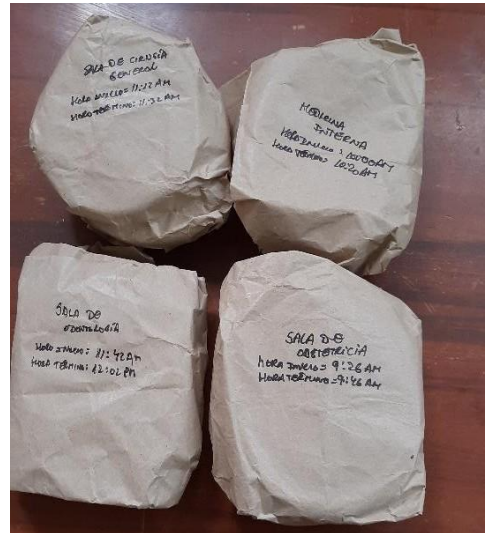 SALA DE CIRUGÍA
GENERAL
HORA INICIO: 11:12 AM
HORA TÉRMINO: 11:32 AM
MEDICINA
INTERNA
HORA INICIO: 10:00 AM
HORA TÉRMINO: 10:20 AM
SALA DE
ODONTOLOGÍA
HORA INICIO: 11:42 AM
HORA TÉRMINO: 12:02 PM
SALA DE
OBSTETRICIA
HORA INICIO = 9:26 AM
HORA TÉRMINO = 9:46 AM